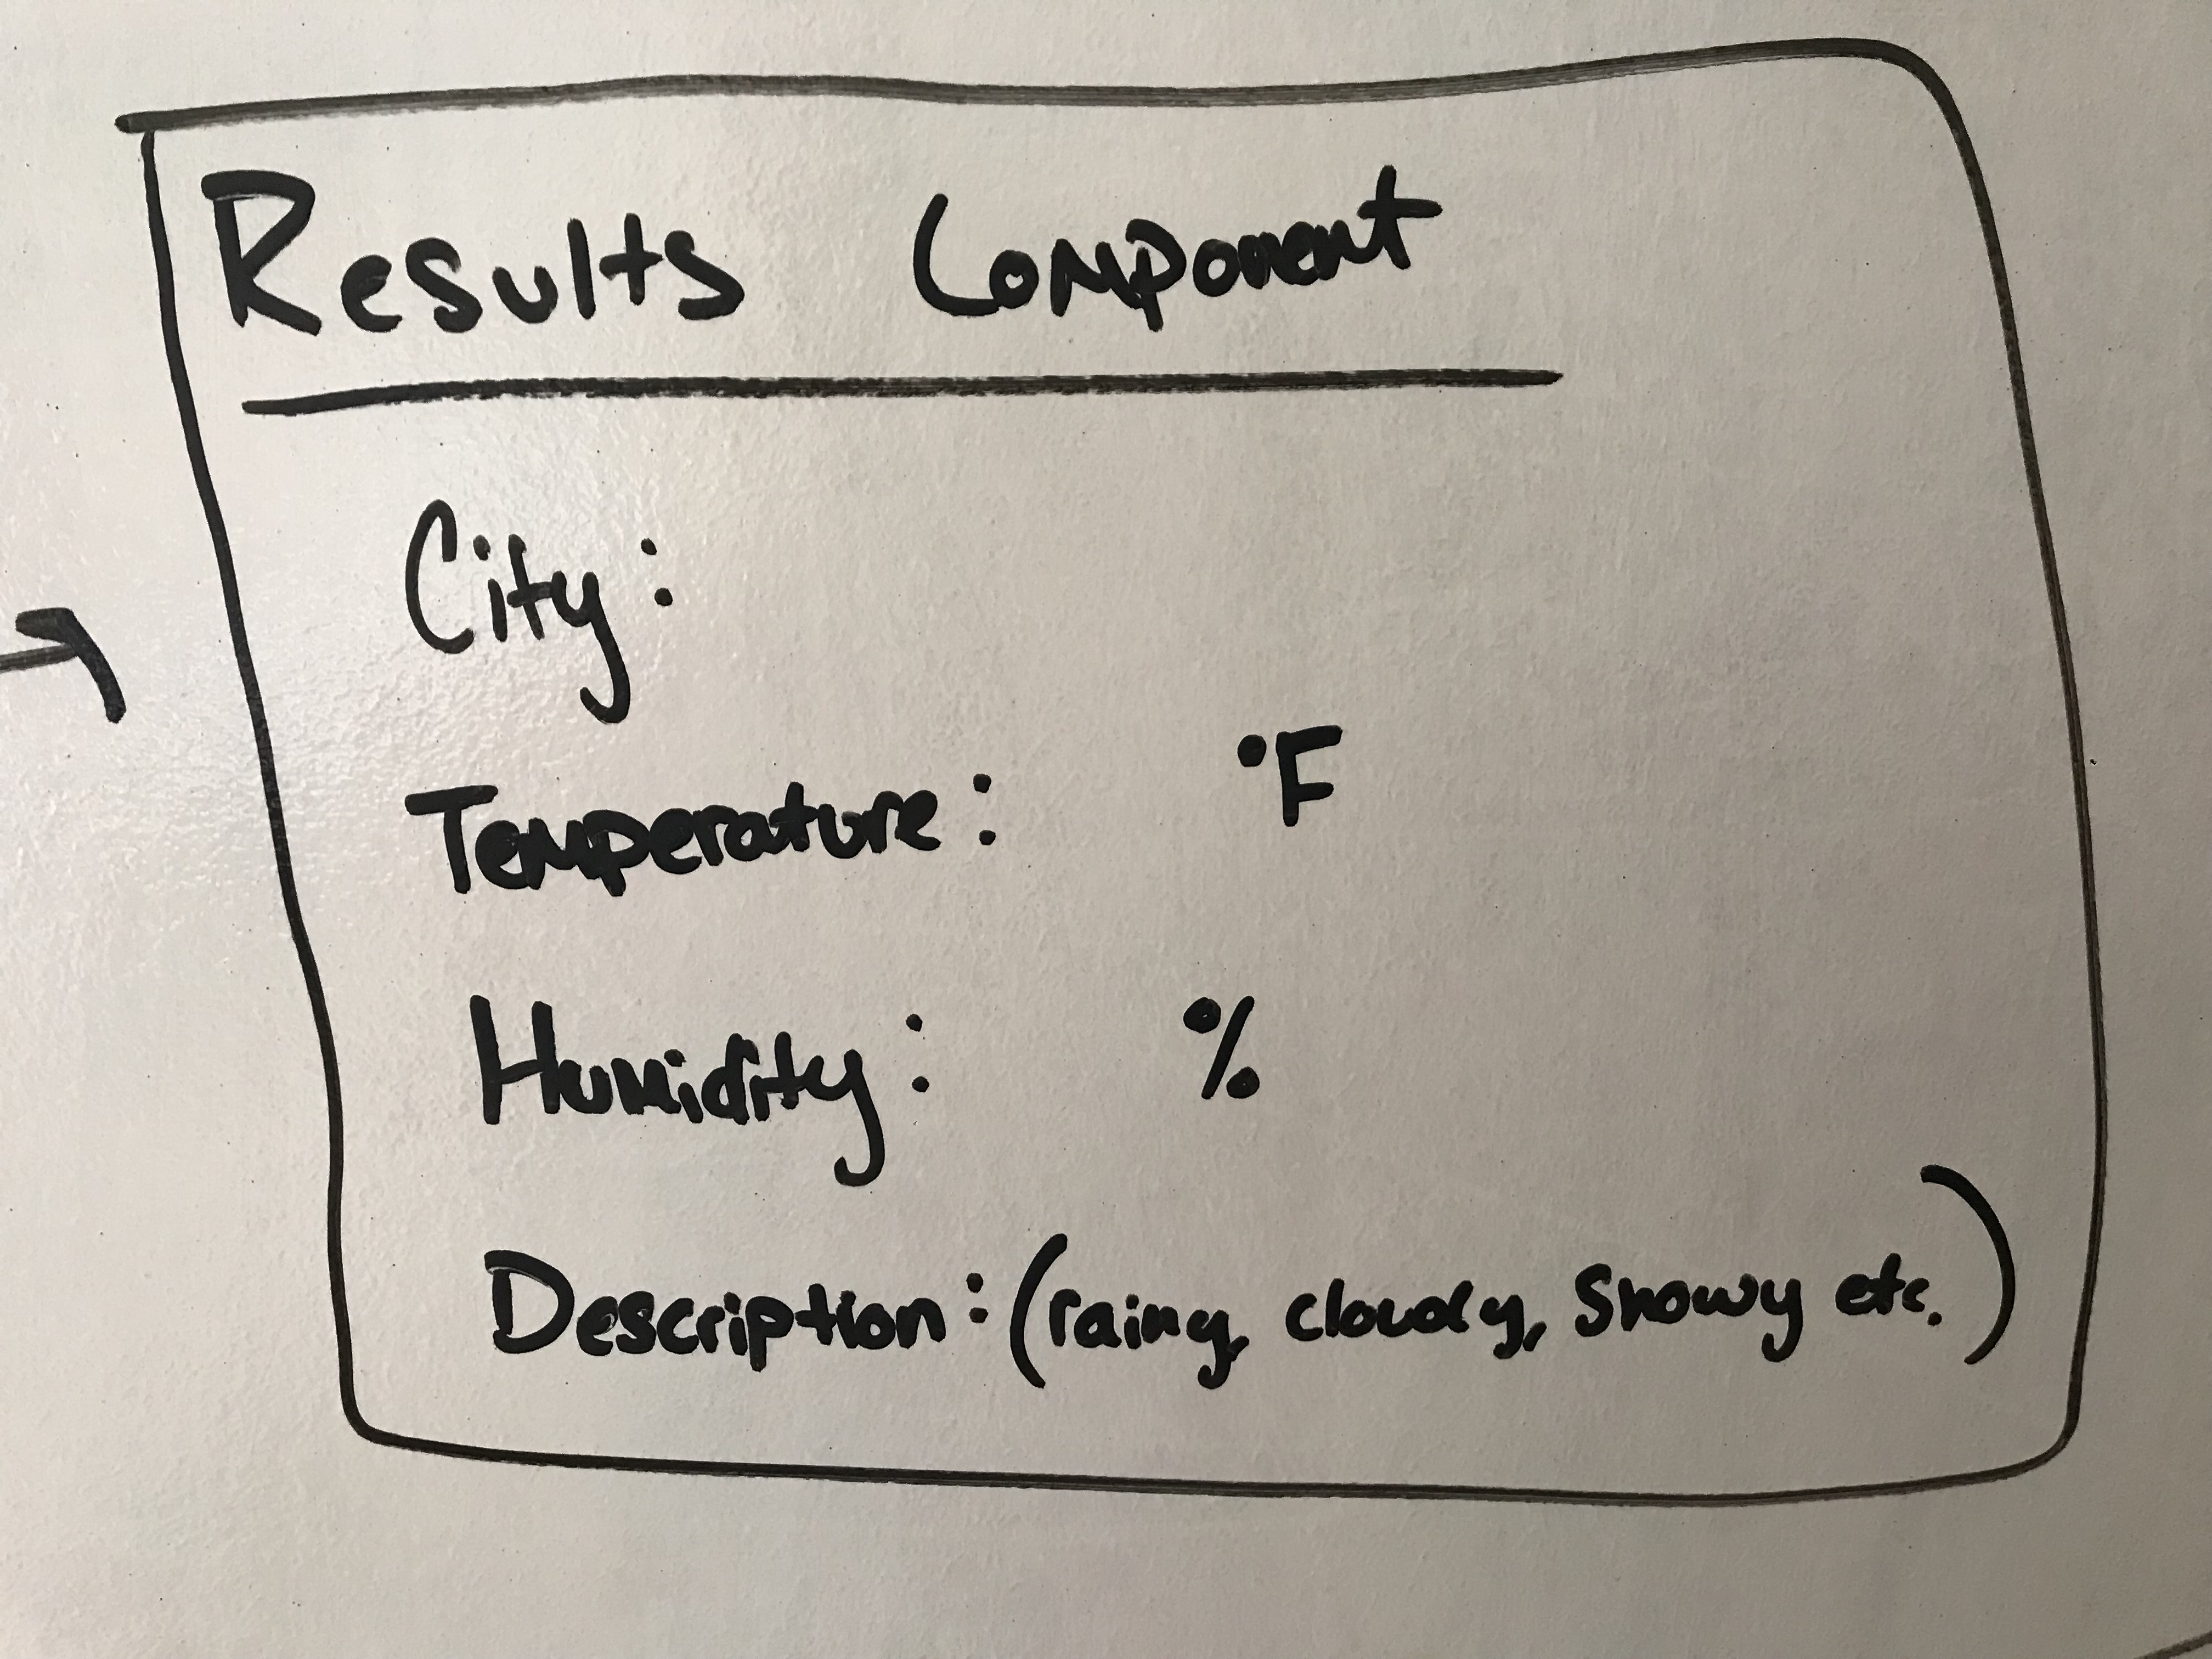 Results Component
City:
Temperature: °F
Humidity: %
Description: (rainy, cloudy, Snowy etc.)